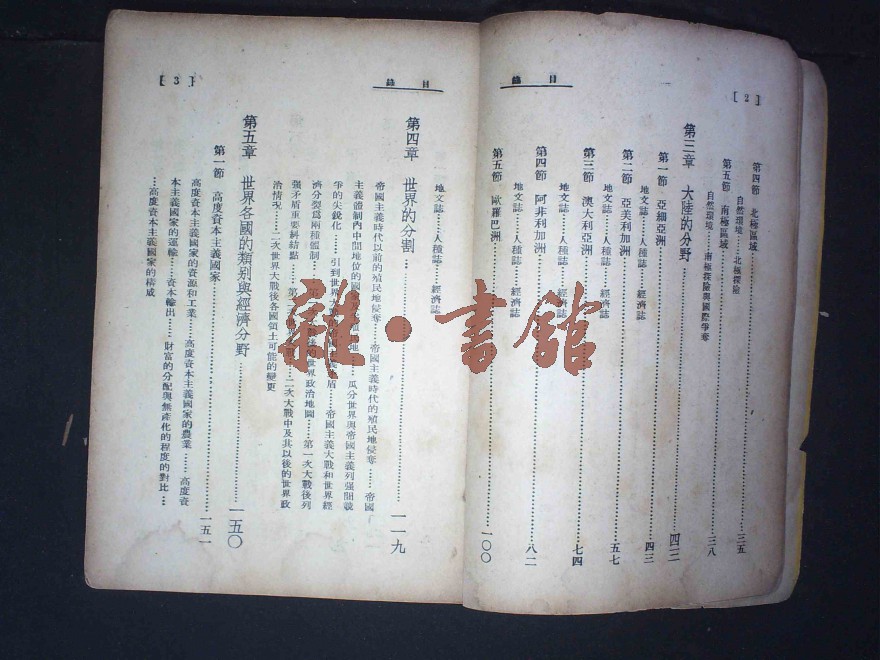 目錄
[2]
第四節 北極區域……三五
自然環境……北極探險
第五節 南極區域……三八
自然環境……南極探險與國際爭奪
第三章 大陸的分野……四三
第一節 亞細亞洲……四三
地文誌……人種誌……經濟誌
第二節 亞美利加洲……五七
地文誌……人種誌……經濟誌
第三節 澳大利亞洲……七四
地文誌……人種誌……經濟誌
第四節 阿非利加洲……八二
地文誌……人種誌……經濟誌
第五節 歐羅巴洲……一〇〇
目錄
[3]
地文誌……人種誌……經濟誌
第四章 世界的分割……一一九
帝國主義時代以前的殖民地侵奪……帝國主義時代的殖民地侵奪……帝國
主義體制內中間地位的國家……瓜分世界與帝國主義列强間競
爭的尖銳化……引到世界大……帝國主義大戰和世界經
濟分裂爲兩種體制……後的世界政治地圖……第一次大戰後列
强矛盾重要糾結點……二次大戰中及其以後的世界政
治情況……二次世界大戰後各國領土可能的變更
第五章 世界各國的類別與經濟分野……一五〇
第一節 高度資本主義國家……一五一
高度資本主義國家的資源和工業……高度資本主義國家的農業……高度資
本主義國家的運輸……資本輸出……財富的分配與無產化的程度的對比……
…高度資本主義國家的構成
雜·書館